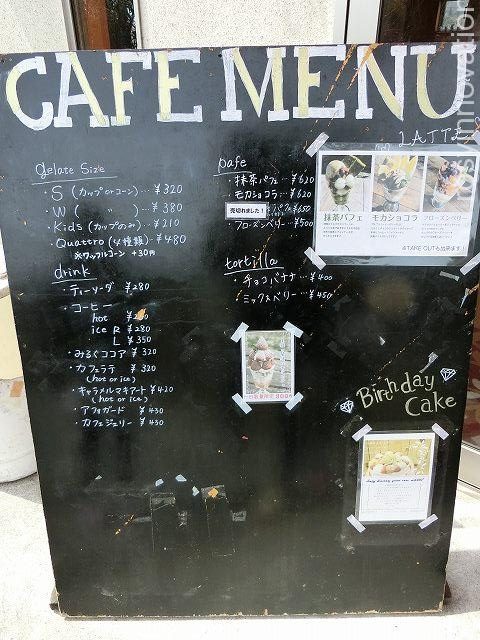 CAFE MENU
LATTE
gelate Size
・S (カップorコーン)… ¥320
・W ( 〃 ) … ¥380
・Kids (カップのみ)… ¥210
・Quattro (4種類) … ¥480
※ワッフルコーン +30円
drink
・ティーソーダ ¥280
・コーヒー
hot
ice R ¥280
L ¥350
・みるくココア ¥320
・カフェラテ ¥320
(hot or ice)
・キャラメルマキアート ¥420
(hot or ice)
・アフォガード ¥430
・カフェジェリー ¥430
pafe
・抹茶パフェ … ¥620
・モカショコラ … ¥620
売切れました!
パフェ ¥650
・フローズンベリー … ¥500
tortilla
・チョコバナナ … ¥400
・ミックスベリー … ¥450
抹茶パフェ
モカショコラ
フローズンベリー
&TAKE OUTも出来ます!
Birthday
Cake